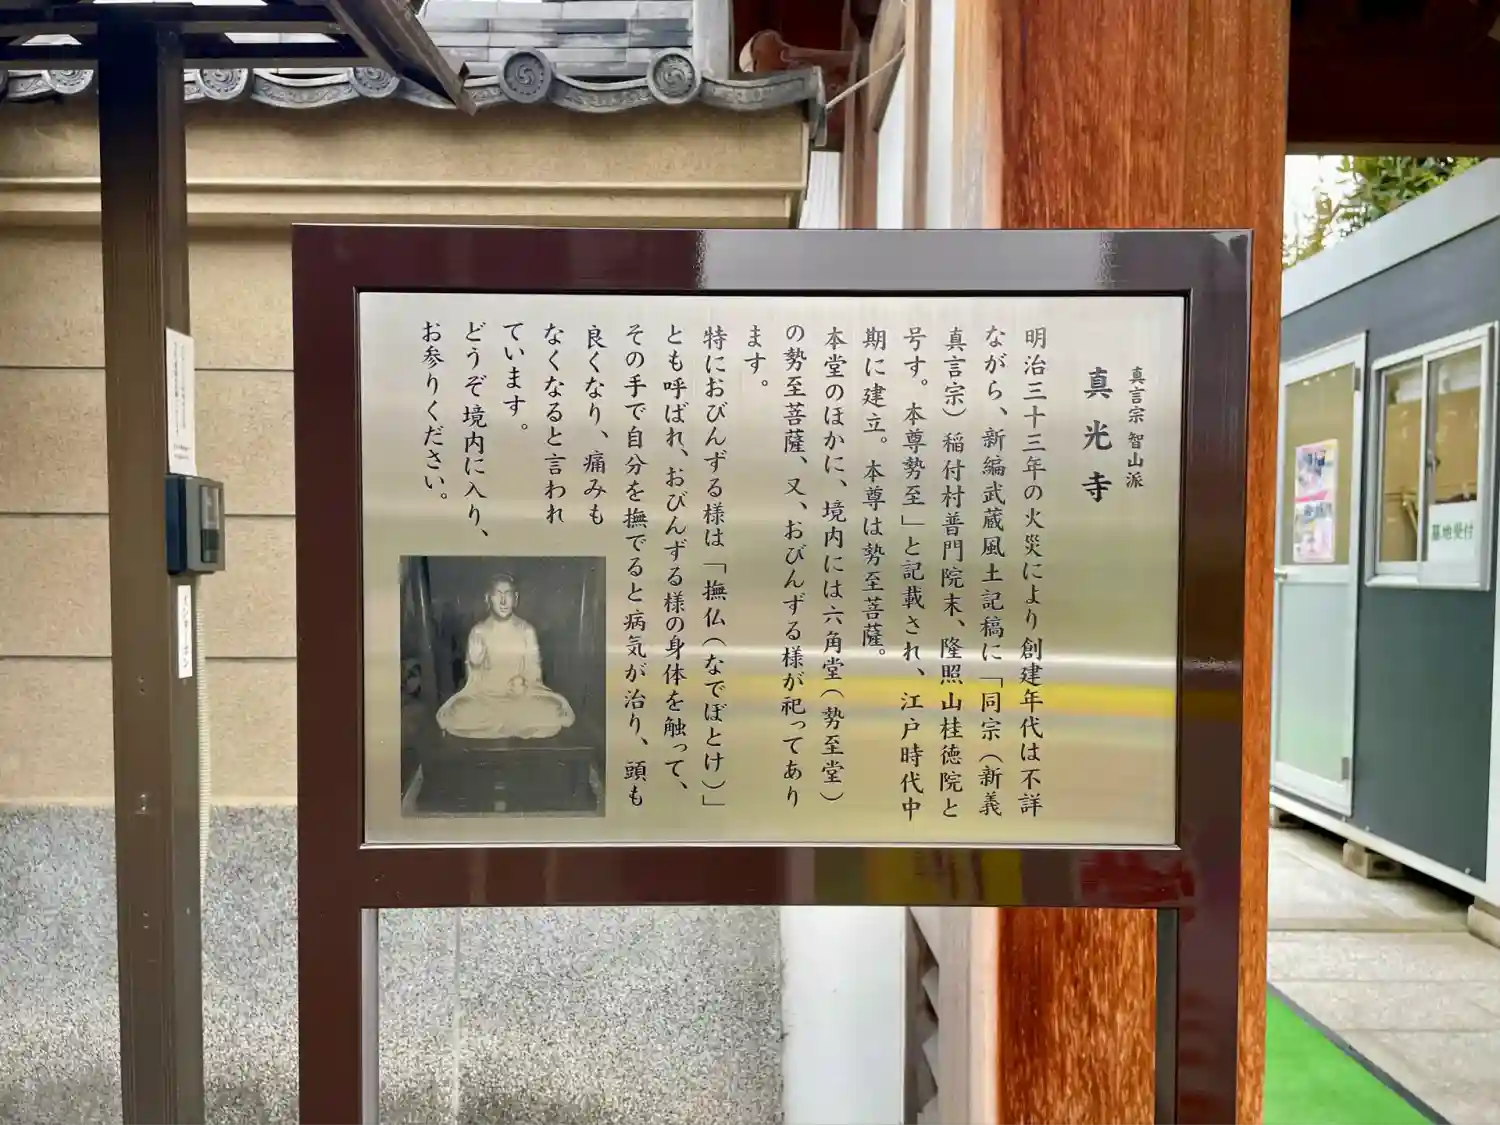 真言宗 智山派
真光寺
明治三十三年の火災により創建年代は不詳
ながら、新編武蔵風土記稿に「同宗(新義
真言宗)稲付村普門院末、隆照山桂徳院と
号す。本尊勢至」と記載され、江戸時代中
期に建立。本尊は勢至菩薩。
本堂のほかに、境内には六角堂(勢至堂)
の勢至菩薩、又、おびんずる様が祀ってあり
ます。
特におびんずる様は「撫仏(なでぼとけ)」
とも呼ばれ、おびんずる様の身体を触って、
その手で自分を撫でると病気が治り、頭も
良くなり、痛みも
なくなると言われ
ています。
どうぞ境内に入り、
お参りください。
インターホン
墓地受付